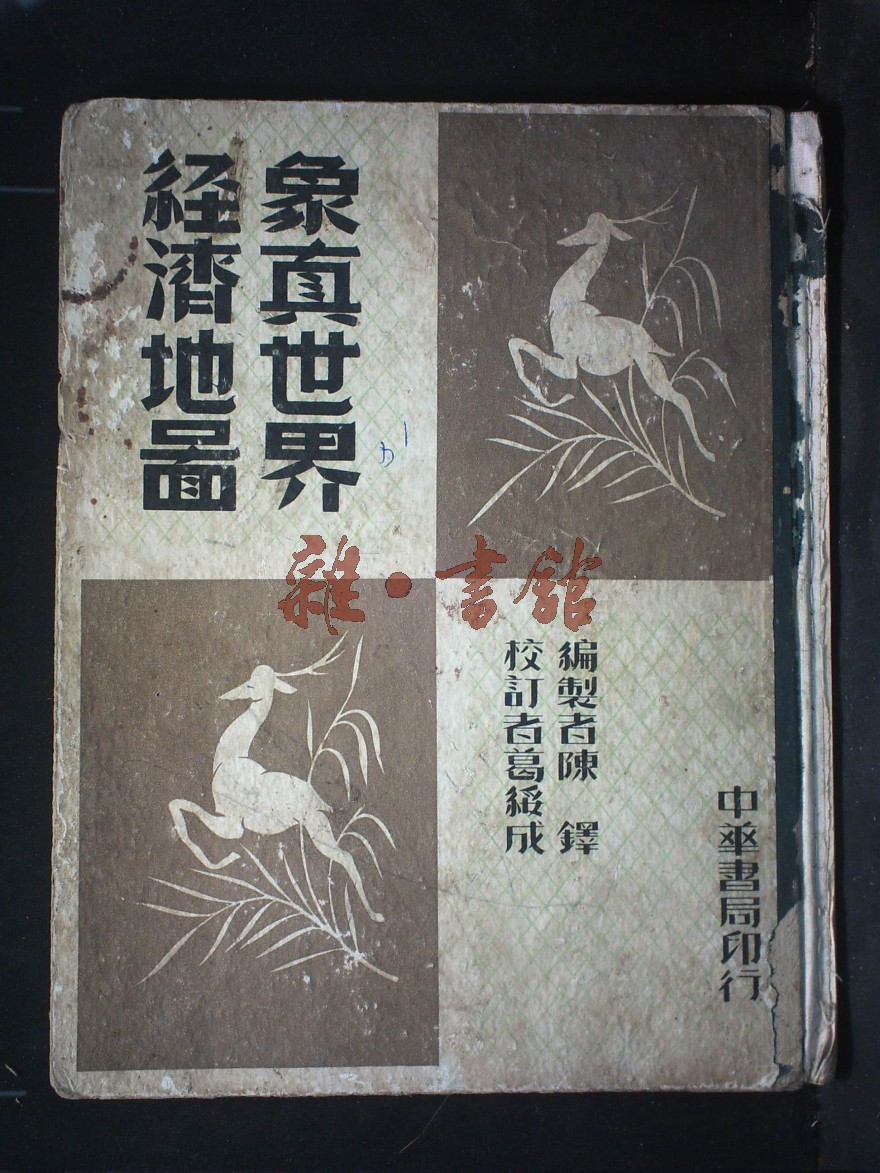 象真世界
経濟地圖
編製者陳 鐸
校訂者葛綏成
中華書局印行
雜·書館